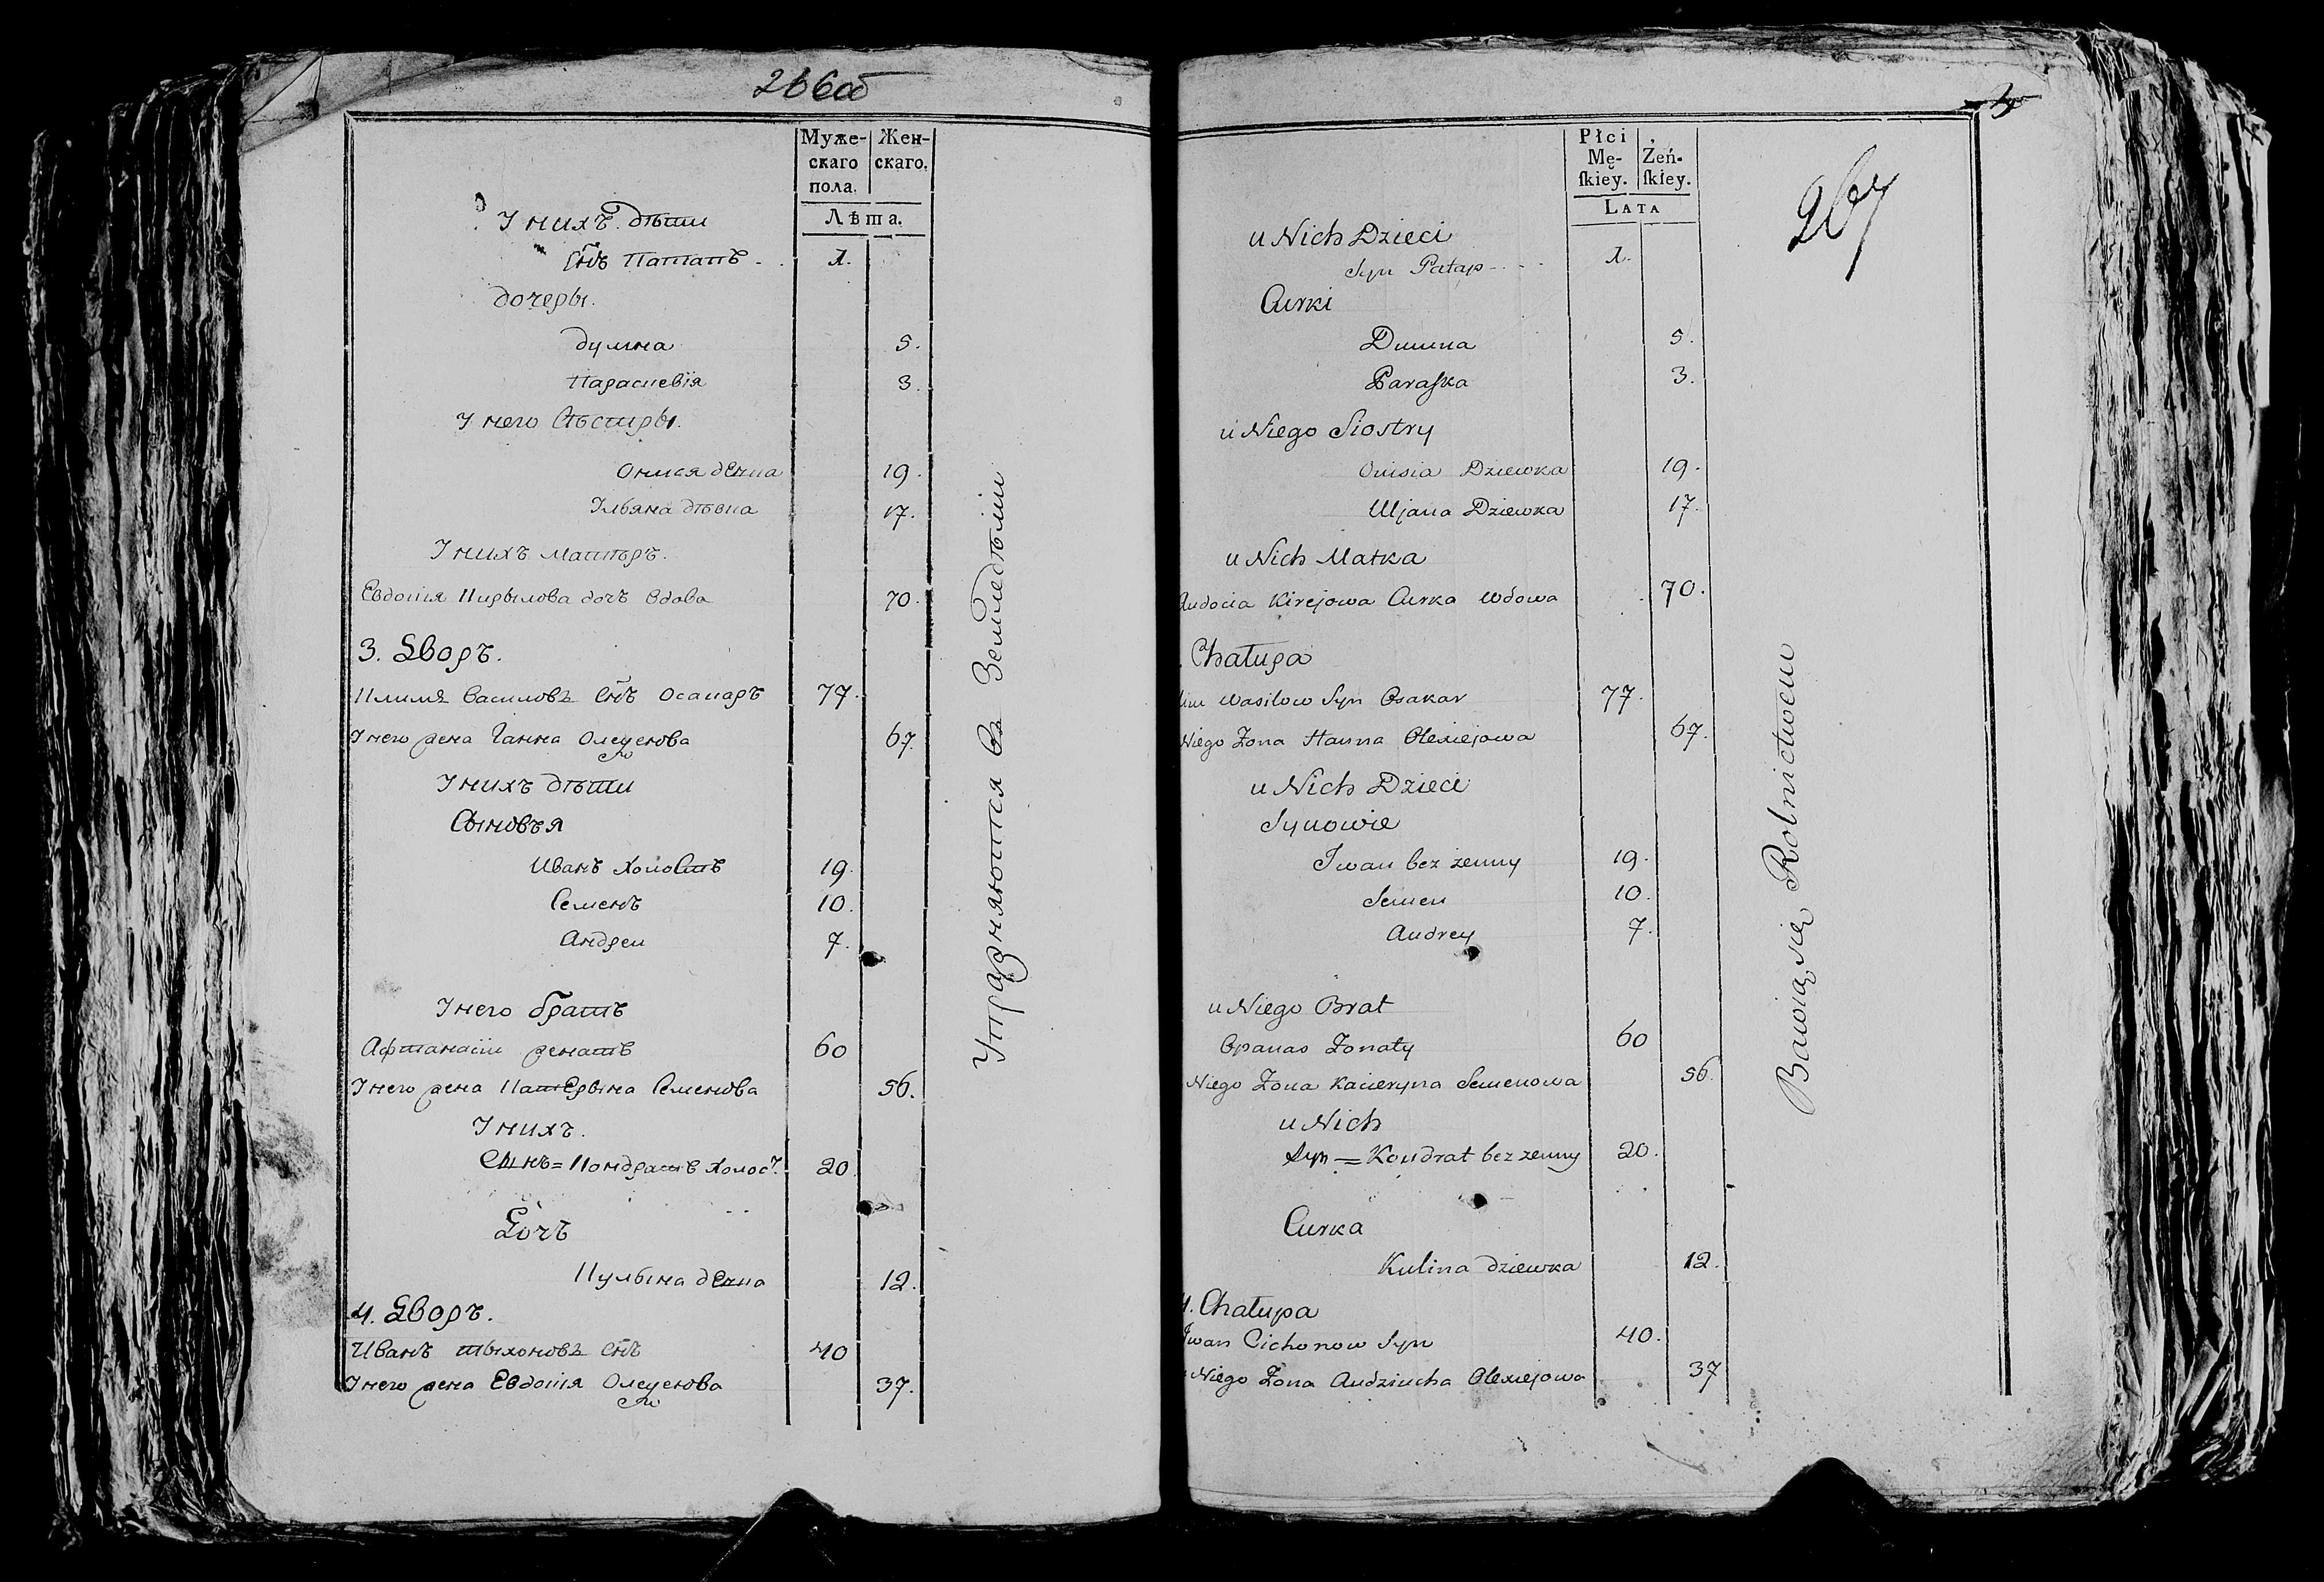 266об
Муже- Жен-
скаго скаго.
пола.
Лѣта.
У нихъ дѣти
Снъ Патапъ - . 1.
дочеры.
думна 5.
Параскевія 3.
У него Сѣстры.
Онися дѣвка 19.
Ульяна дѣвка 17.
У нихъ матѣръ.
Евдокія Кирылова дочъ вдова 70.
3. Дворъ.
Климъ Василовъ Снъ Осакаръ 77.
У него жена Ганна Олеѯеюва 67.
У нихъ дѣти
Сыновъя
Иванъ холостъ 19.
Семенъ 10.
Андреи 7.
У него братъ
Афтанасіи женатъ 60
У него жена Катерына Семенова 56.
У нихъ.
Сынъ = Кондратъ холост. 20.
Дочъ
Кулына дѣвка 12.
4. Дворъ.
Иванъ тыхоновъ Снъ 40
У него жена Евдокія Олеѯеюва 37.
Упражняются въ Земледѣліи
5
267
Płci
Mę- Żeń-
ſkiey. ſkiey.
LATA
u Nich Dzieci
Syn Patap - . . . 1.
Curki
Dumna 5.
Paraſka 3.
u Niego Siostry
Onisia Dziewka 19.
Uljana Dziewka 17.
u Nich Matka
Audocia Kirejowa Curka wdowa 70.
. Chałupa
lim Wasilow Syn Osakar 77.
Niego Żona Hanna Olexiejowa 67.
u Nich Dzieci
Synowie
Iwan bez żenny 19.
Semen 10.
Andrey 7.
u Niego Brat
Opanas Żonaty 60
Niego Żona Kacieryna Semenowa 56.
u Nich
Syn = Kondrat bez żenny 20.
Curka
Kulina dziewka 12.
4. Chałupa
Iwan Cichonow Syn 40.
u Niego Żona Audziucha Olexiejowa 37
Bawią się Rolnictwem